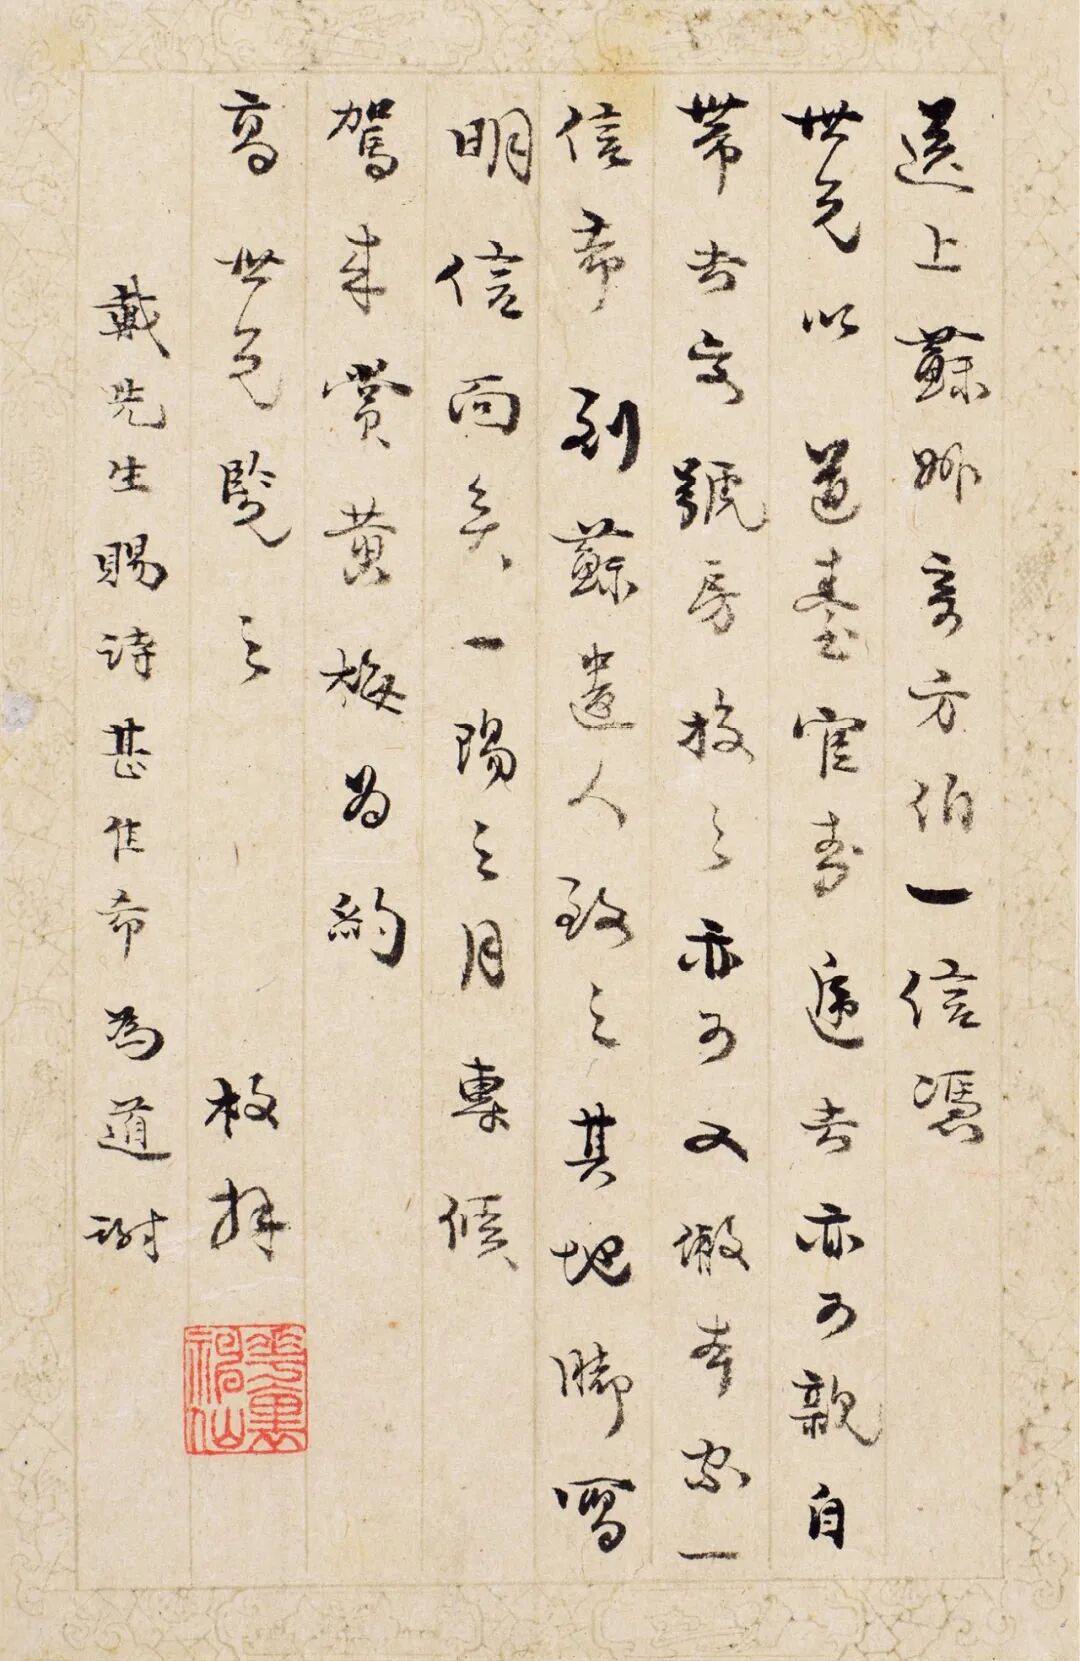 送上蘇州奇方伯一信憑
世兄以道臺官封遞去亦可親自
帶去交號房投之亦可又徽李家一
信帶到蘇遣人致之其地腳寫
明信面矣一陽之月專候
駕來賞黃梅為約
高世兄覽之 枚拜
戴先生賜詩甚佳希為道謝
花裏神仙